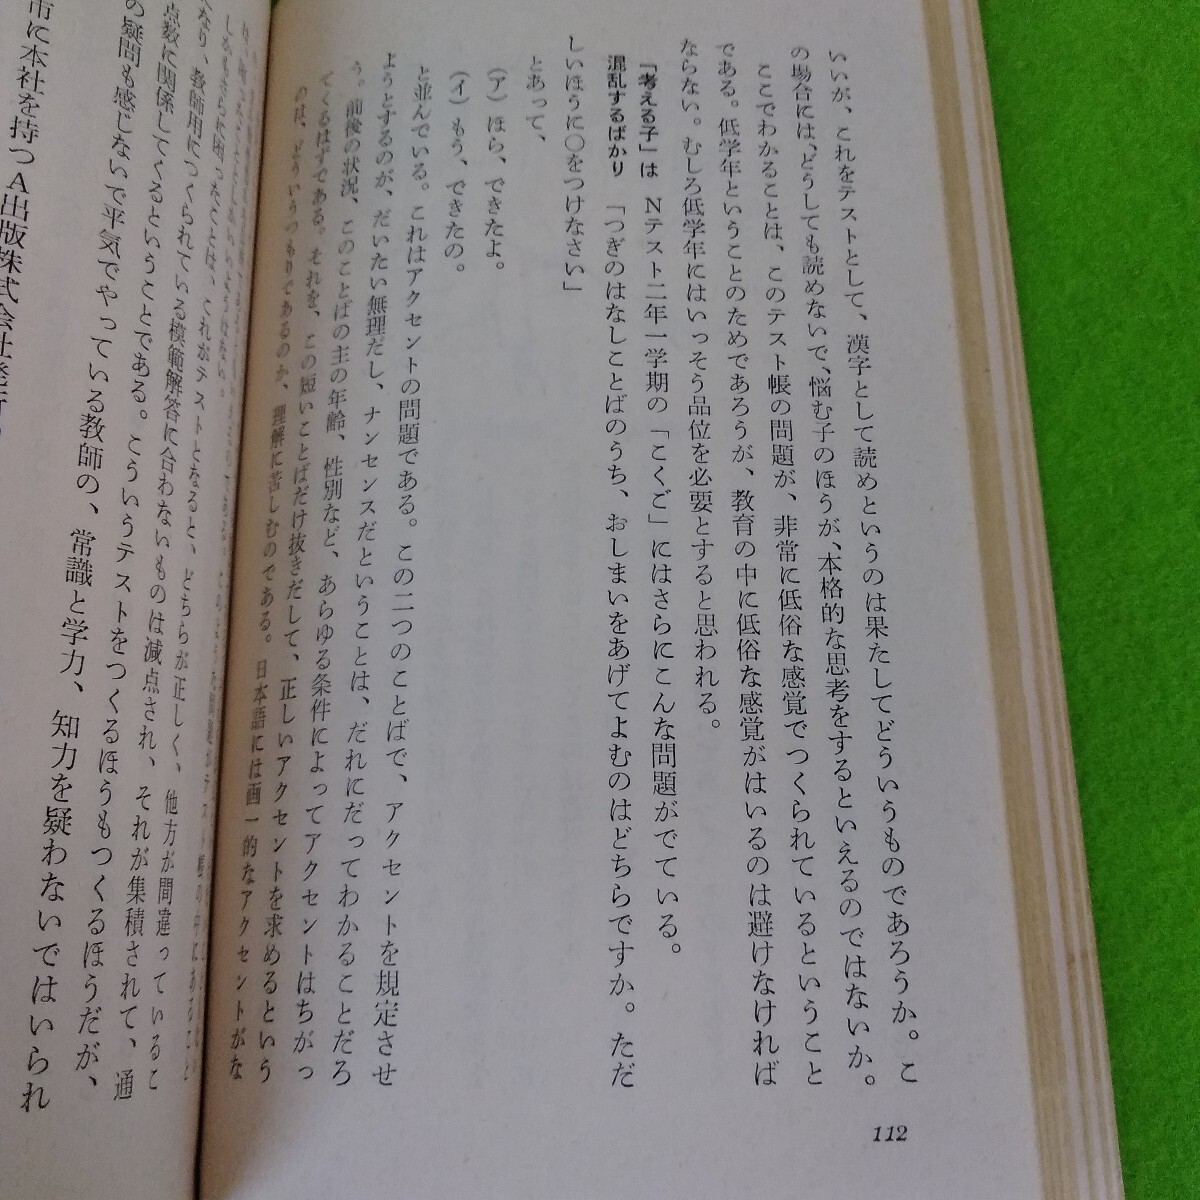 いいが、これをテストとして、漢字として読めというのは果たしてどういうものであろうか。こ
の場合には、どうしても読めないで、悩む子のほうが、本格的な思考をするといえるのではないか。
ここでわかることは、このテスト帳の問題が、非常に低俗な感覚でつくられているということ
である。低学年ということのためであろうが、教育の中に低俗な感覚がはいるのは避けなければ
ならない。むしろ低学年にはいっそう品位を必要とすると思われる。
「考える子」は
混乱するばかり
Nテスト二年一学期の「こくご」にはさらにこんな問題がでている。
「つぎのはなしことばのうち、おしまいをあげてよむのはどちらですか。ただ
しいほうに○をつけなさい」
とあって、
（ア）ほら、できたよ。
（イ）もう、できたの。
と並んでいる。これはアクセントの問題である。この二つのことばで、アクセントを規定させ
ようとするのが、だいたい無理だし、ナンセンスだということは、だれにだってわかることだろ
う。前後の状況、このことばの主の年齢、性別など、あらゆる条件によってアクセントはちがっ
てくるはずである。それを、この短いことばだけ抜きだして、正しいアクセントを求めるという
のは、どういうつもりであるのか、理解に苦しむのである。日本語には画一的なアクセントがな
112
しかもさらに困ったことは、これがテストとなると、どちらが正しく、他方が間違っているこ
なり、教師用につくられている模範解答に合わないものは減点され、それが集積されて、通
点数に関係してくるということである。こういうテストをつくるほうもつくるほうだが、
の疑問も感じないで平気でやっている教師の、常識と学力、知力を疑わないではいられ
市に本社を持つA出版株式会社発行